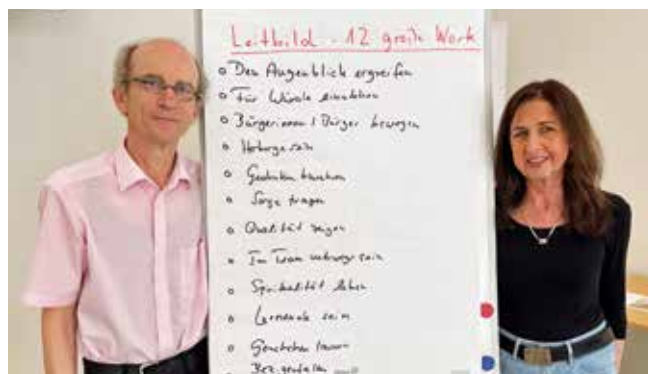 Leitbild - 12 große Worte
o Den Augenblick ergreifen
o Für Würde einstehen
o Bürgerinnen / Bürger bewegen
o Herberge sein
o Gedenken bewahren
o Sorge tragen
o Qualität zeigen
o Im Team unterwegs sein
o Spiritualität leben
o Lernende sein
o Geschehen lassen